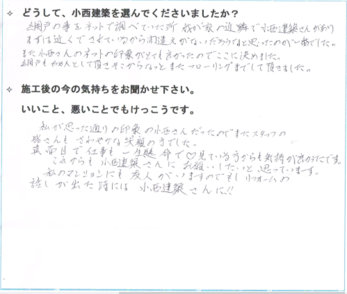 ✧ どうして、小西建築を選んでくださいましたか？
網戸の事をネットで調べていた所 我が家の近隣で小西建築さんがあり
まずは近くでされているから間違えがないだろうなと思ったのが一番でした。
また小西さんのネットの印象がとても良かったのでここに決めました。
網戸もやるんとして頂きそこからなっと またフローリングまでして頂きました。
✧ 施工後の今の気持ちをお聞かせ下さい。
いいこと、悪いことでもけっこうです。
私が思った通りの印象の小西さんだったのでまたスタッフの
皆さんもさわやかな状態の方でした。
真面目で仕事も一生懸命で♡見ている方からも気持が良かったです
これからも小西建築さんにお願いしたいと思っています。
私のマンションにも友人がいますのでもしリフォームの
話しが出た時には 小西建築さんに!!